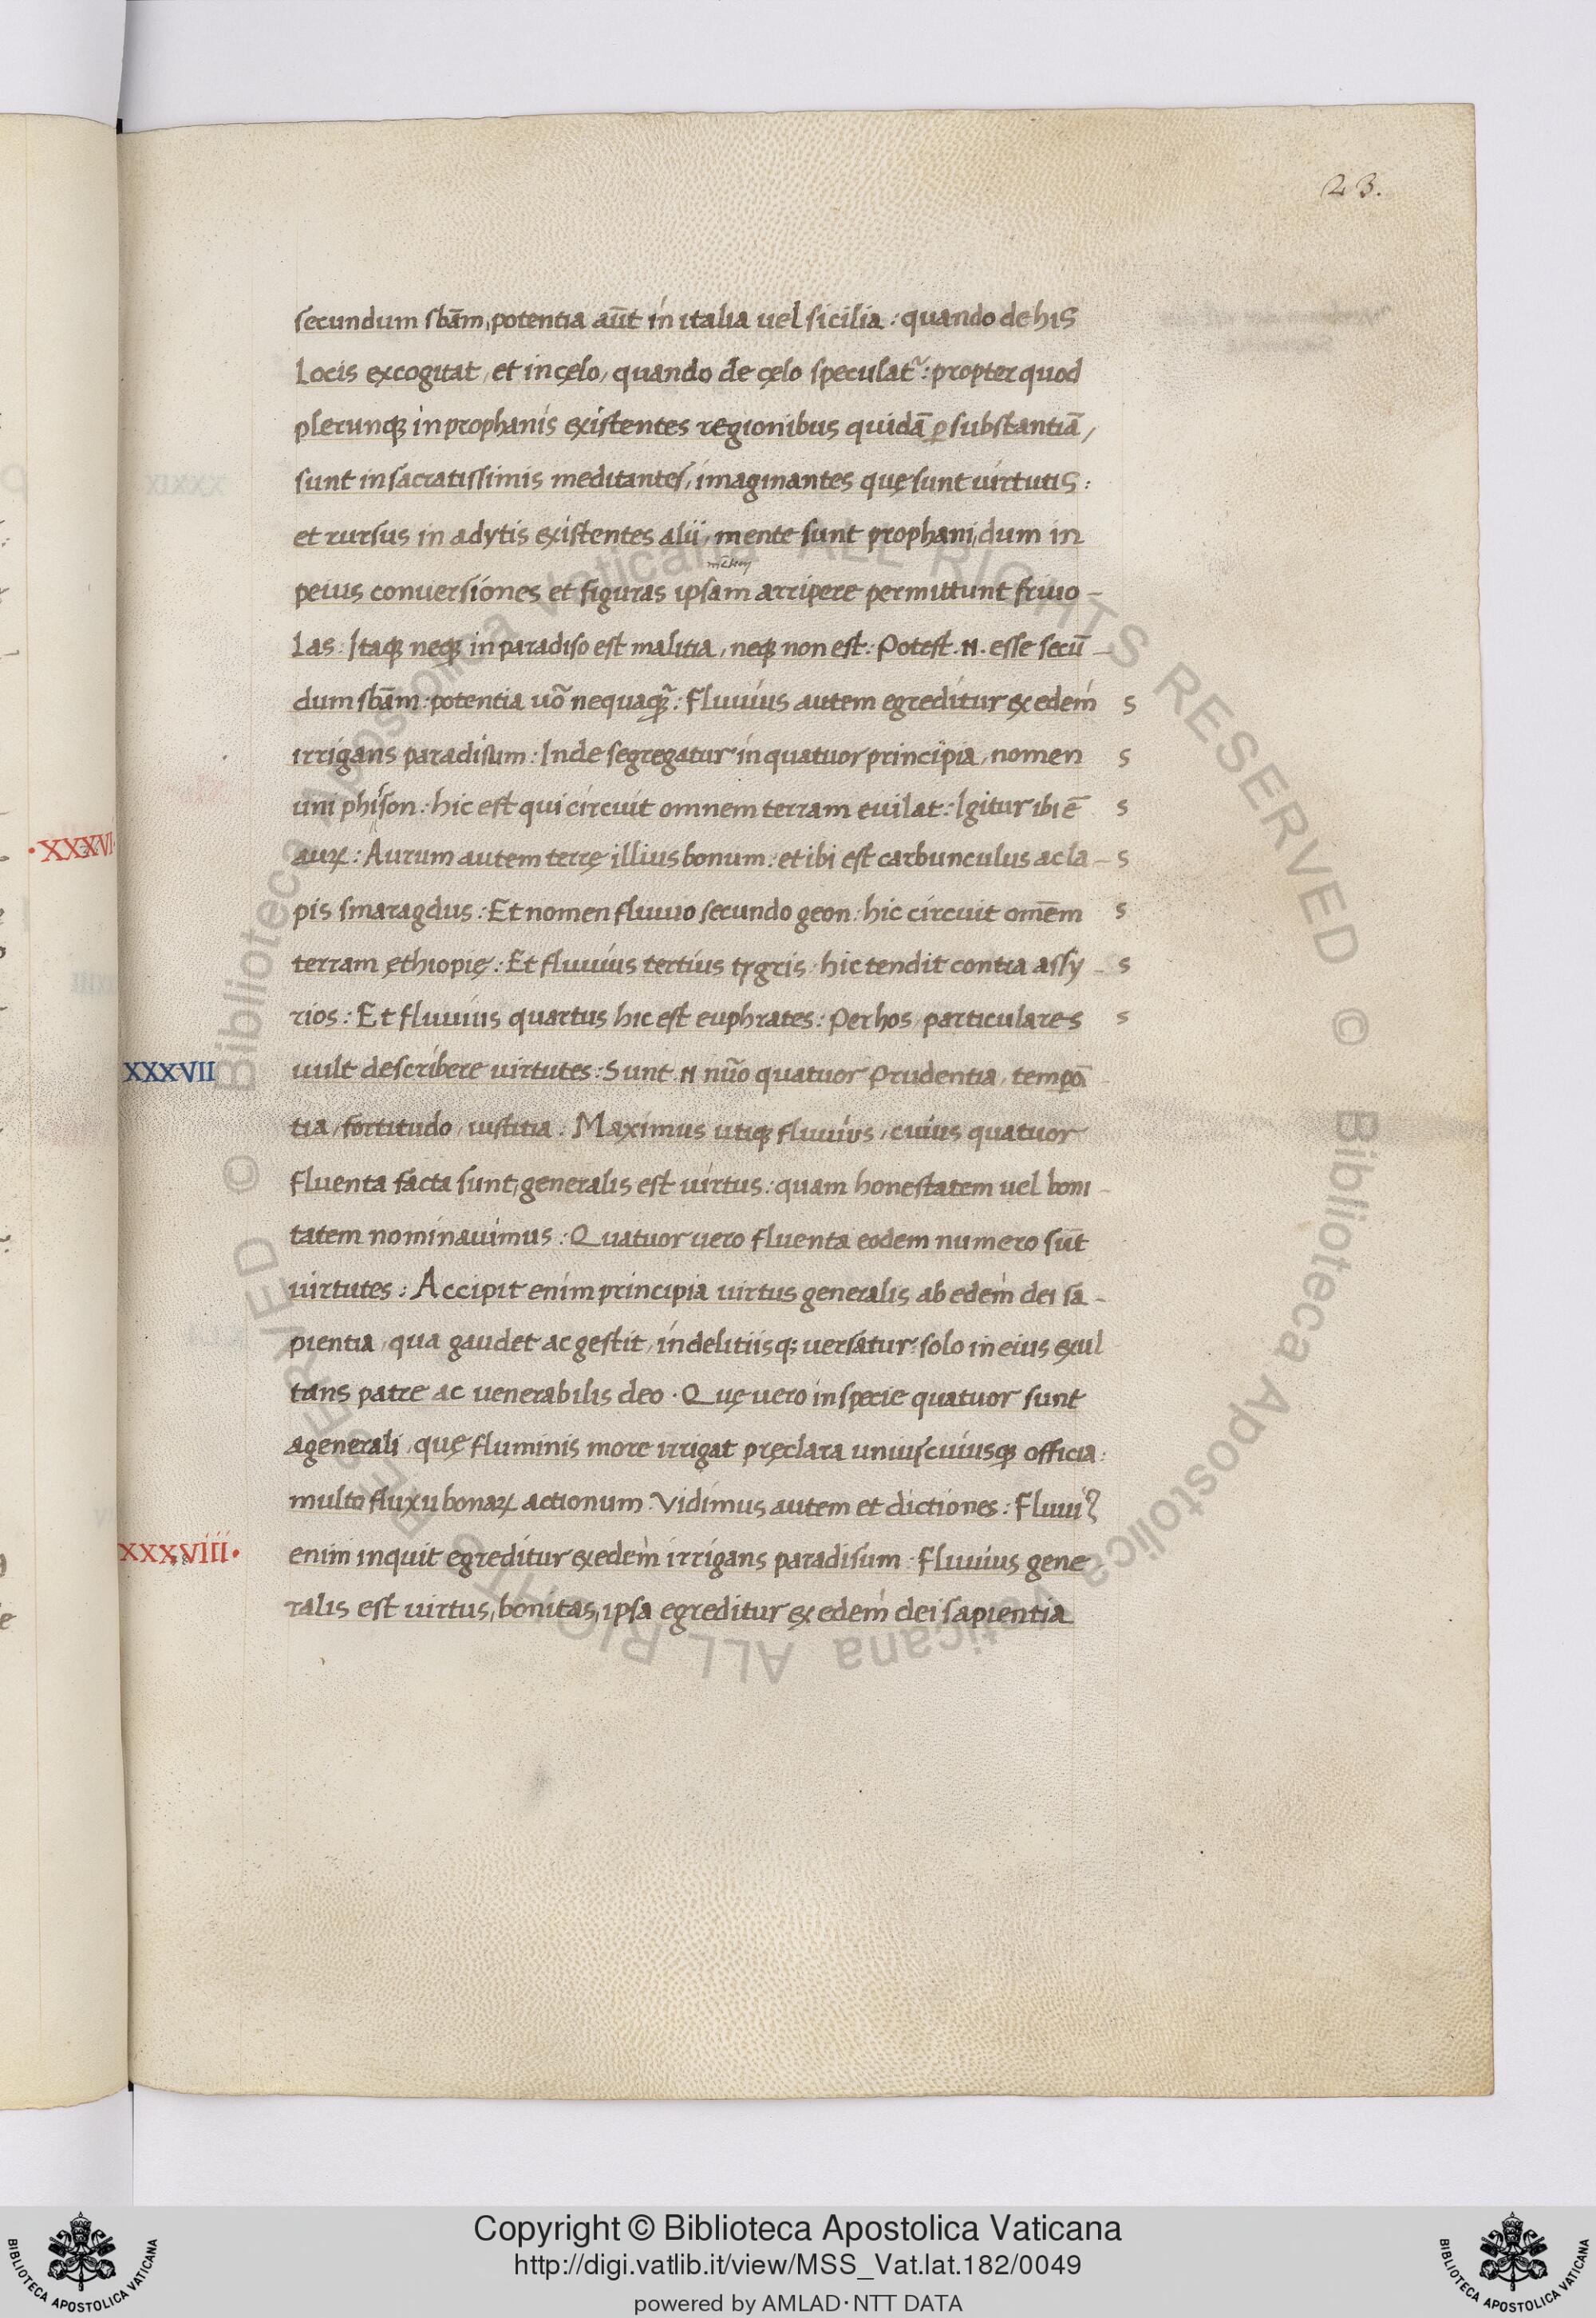 23.
secundum sbām, potentia aūt in italia uel sicilia: quando de his
Locis excogitat, et in cęlo, quando de cęlo speculat᷑: propter quod
plerunqꝫ in prophanis existentes regionibus quidā ꝑ substantiā,
sunt in sacratissimis meditantes, imaginantes quę sunt uirtutis:
et rursus in adytis existentes alii, mente sunt prophani, dum in
peius conuersiones et figuras ipsam arripere permittunt friuo-
Las: Itaqꝫ neqꝫ in paradiso est malitia, neqꝫ non est: Potest .N. esse secū-
dum sbām: potentia uō nequaqꝫ̃: Fluuius autem egreditur ex edem s
irrigans paradisum: Inde segregatur in quatuor principia, nomen s
uni phison: hic est qui circuit omnem terram euilat: Igitur ibi ē s
·XXXVI·
auꝝ: Aurum autem terrę illius bonum: et ibi est carbunculus ac la- s
pis smaragdus: Et nomen fluuio secundo geon: hic circuit omēm s
terram ęthiopię: Et fluuius tertius tygris: hic tendit contra assy- s
rios: Et fluuius quartus hic est euphrates: Per hos particulares s
XXXVII
uult describere uirtutes: Sunt .N nūo quatuor Prudentia, tempō
tia, fortitudo, iustitia. Maximus utiqꝫ fluuius, cuius quatuor
fluenta facta sunt, generalis est uirtus: quam honestatem uel boni-
tatem nominauimus: Quatuor uero fluenta eodem numero sūt
uirtutes: Accipit enim principia uirtus generalis ab edem dei sa-
pientia, qua gaudet ac gestit, in delitiisq; uersatur: solo in eius exul
tans patre ac uenerabilis deo. Quę uero in specie quatuor sunt
a generali, quę fluminis more irrigat pręclara uniuscuiusqꝫ officia:
multo fluxu bonaꝝ actionum: Vidimus autem et dictiones: Fluuiꝰ
XXXVIII·
enim inquit egreditur ex edem irrigans paradisum: Fluuius gene
ralis est uirtus, bonitas, ipsa egreditur ex edem dei sapientia
Copyright © Biblioteca Apostolica Vaticana
http://digi.vatlib.it/view/MSS_Vat.lat.182/0049
powered by AMLAD·NTT DATA